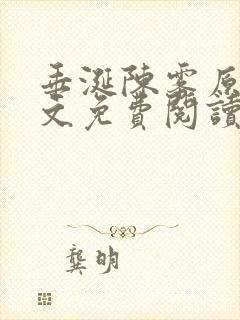 垂涎陳雾原
文免費閱讀
龔明